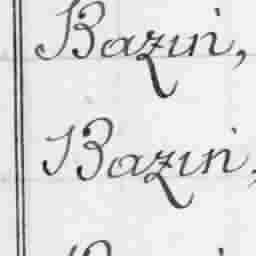 Bazin,
Bazin,